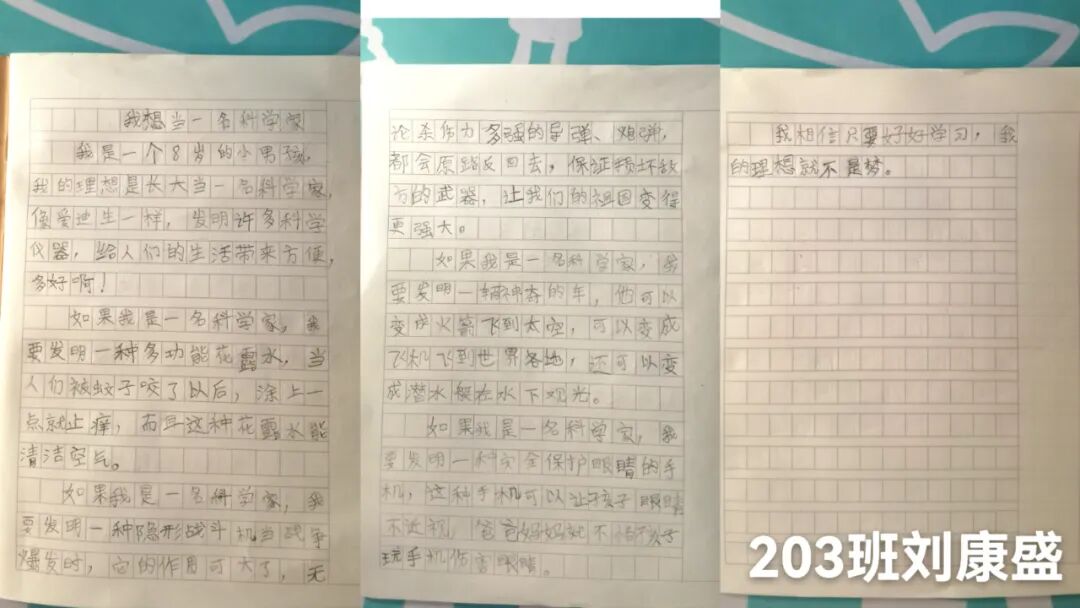 我想当一名科学家
我是一个8岁的小男孩，
我的理想是长大当一名科学家，
像爱迪生一样，发明许多科学
仪器，给人们的生活带来方便，
多好啊！
如果我是一名科学家，我
要发明一种多功能花露水，当
人们被蚊子咬了以后，涂上一
点就止痒，而且这种花露水能
清洁空气。
如果我是一名科学家，我
要发明一种隐形战斗机当战争
爆发时，它的作用可大了，无
论杀伤力多强的导弹、炮弹，
都会原路反回去，保证损坏敌
方的武器，让我们的祖国变得
更强大。
如果我是一名科学家，我
要发明一辆神奇的车，他可以
变成火箭飞到太空，可以变成
飞机飞到世界各地，还可以变
成潜水艇在水下观光。
如果我是一名科学家，我
要发明一种安全保护眼睛的手
机，这种手机可以让孩子眼睛
不近视，爸爸妈妈就不怕孩子
玩手机伤害眼睛。
我相信只要好好学习，我
的理想就不是梦。
203班刘康盛